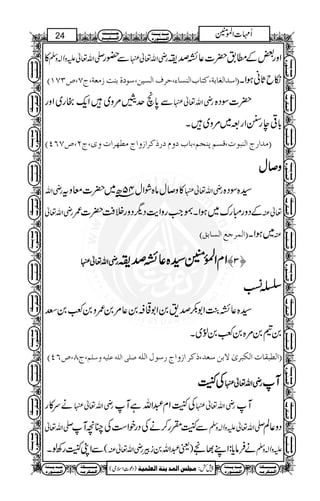 24
اُمہات المؤمنین
اور بعض کے مطابق حضرت عائشہ صدیقہ رضی اللہ تعالیٰ عنہا سے حضور صلی اللہ تعالیٰ علیہ والہ وسلم کا
نکاح ثانی ہوا۔ (اسدالغابة،کتاب النساء،حرف السین،سودة بنت زمعة،ج۷،ص۱۷۳)
حضرت سودہ رضی اللہ تعالیٰ عنہا سے پانچ حدیثیں مروی ہیں ایک بخاری اور
باقی چار سنن اربعہ میں مروی ہیں۔
(مدارج النبوت،قسم پنجم،باب دوم درذکرازواج مطهرات وی،ج۲،ص۴۶۷)
وصال
سیدہ سودہ رضی اللہ تعالیٰ عنہا کا وصال ماہ شوال ۵۴ھ میں حضرت معاویہ رضی اللہ
تعالیٰ عنہ کے دور مبارک میں ہوا۔ بموجب روایت دیگر دور خلافت حضرت عمر رضی اللہ تعالیٰ
عنہ میں ہوا۔ (المرجع السابق)
﴿۳﴾ ام المؤمنین سیدہ عائشہ صدیقہ رضی اللہ تعالیٰ عنہا
سلسلہ نسب
سیدہ عائشہ بنت ابوبکر صدیق بن ابوقحافہ بن عامر بن عمرو بن کعب بن سعد
بن تیم بن مرہ بن کعب بن لؤی۔
(الطبقات الکبریٰ لابن سعد،ذکر ازواج رسول الله صلى الله عليه وسلم،ج۸،ص۴۶)
آپ رضی اللہ تعالیٰ عنہا کی کنیت
آپ رضی اللہ تعالیٰ عنہا کی کنیت ام عبداللہ ہے آپ رضی اللہ تعالیٰ عنہا نے سرکار
دو عالم صلی اللہ تعالیٰ علیہ والہ وسلم سے کنیت مقرر کرنے کی درخواست کی چنانچہ آپ صلی اللہ تعالیٰ
علیہ والہ وسلم نے فرمایا: اپنے بھانجے (یعنی عبداللہ بن زبیر رضی اللہ تعالیٰ عنہ) سے اپنی کنیت رکھ لو۔
پیش کش: مجلس المدینة العلمیة (دعوت اسلامی)